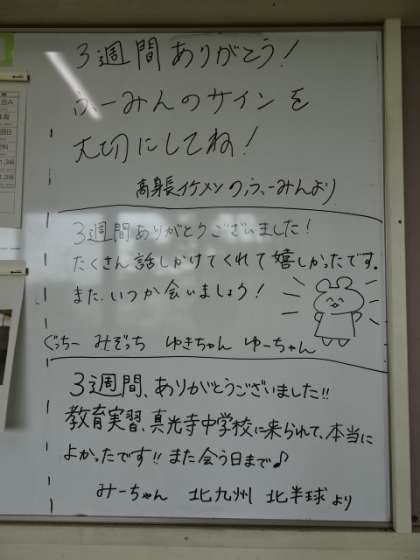 3週間ありがとう!
ふーみんのサインを
大切にしてね!
高身長イケメンのふーみんより
3週間ありがとうございました!
たくさん話しかけてくれて嬉しかったです。
また、いつか会いましょう!
ぐっちー みぞっち ゆきちゃん ゆーちゃん
3週間、ありがとうございました!!
教育実習、真光寺中学校に来られて、本当に
よかったです!! また会う日まで♪
みーちゃん 北九州 北半球より